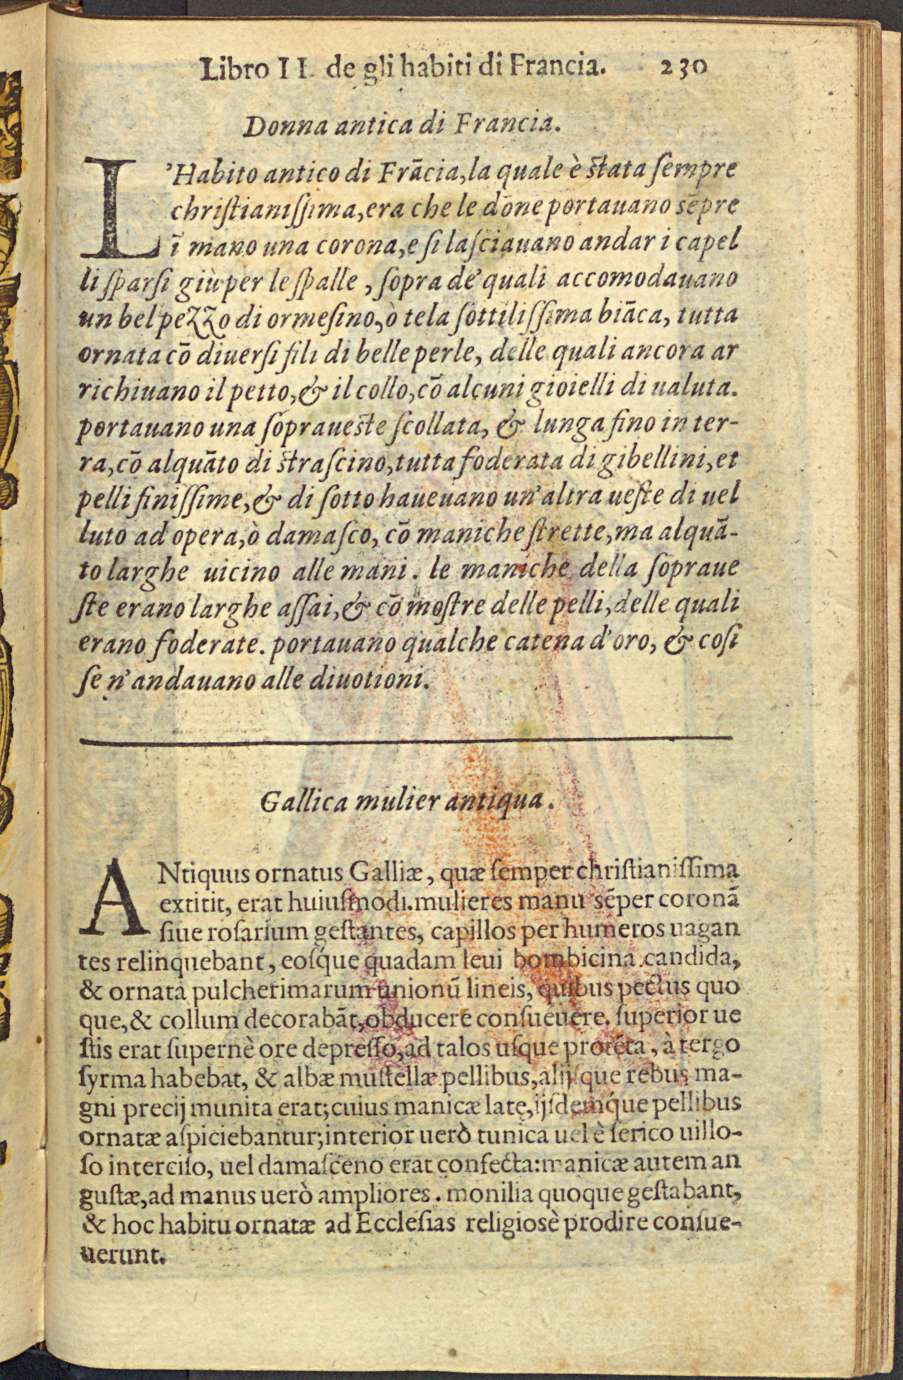 Libro II. de gli habiti di Francia. 230
Donna antica di Francia.
L'Habito antico di Frācia, la quale è stata sempre
christianissima, era che le dōne portauano sēpre
ī mano una corona, e si lasciauano andar i capel
li sparsi giù per le spalle, sopra de' quali accomodauano
un bel pezzo di ormesino, ò tela sottilissima biāca, tutta
ornata cō diuersi fili di belle perle, delle quali ancora ar
richiuano il petto, & il collo, cō alcuni gioielli di ualuta.
portauano una sopraueste scollata, & lunga fino in ter-
ra, cō alquāto di strascino, tutta foderata di gibellini, et
pelli finissime, & di sotto haueuano un'altra ueste di uel
luto ad opera, ò damasco, cō maniche strette, ma alquā-
to larghe uicino alle mani. le maniche della sopraue
ste erano larghe assai, & cō mostre delle pelli, delle quali
erano foderate. portauano qualche catena d'oro, & cosi
se n'andauano alle diuotioni.
Gallica mulier antiqua.
ANtiquus ornatus Galliæ, quæ semper christianissima
extitit, erat huiusmodi. mulieres manu sēper coronā
siue rosarium gestantes, capillos per humeros uagan
tes relinquebant, eosq́ue quadam leui bombicina candida,
& ornata pulcherimarum unionū lineis, quibus pectus quo
que, & collum decorabāt, obducere consueuere. superior ue
stis erat supernè ore depresso, ad talos usque protēta, à tergo
syrma habebat, & albæ mustellæ pellibus, alijsque rebus ma-
gni precij munita erat; cuius manicæ latę, ijsdemq́ue pellibus
ornatæ aspiciebantur; interior uerò tunica uel è serico uillo-
so interciso, uel damasceno erat confecta: manicæ autem an
gustæ, ad manus uerò ampliores. monilia quoque gestabant,
& hoc habitu ornatæ ad Ecclesias religiosè prodire consue-
uerunt.